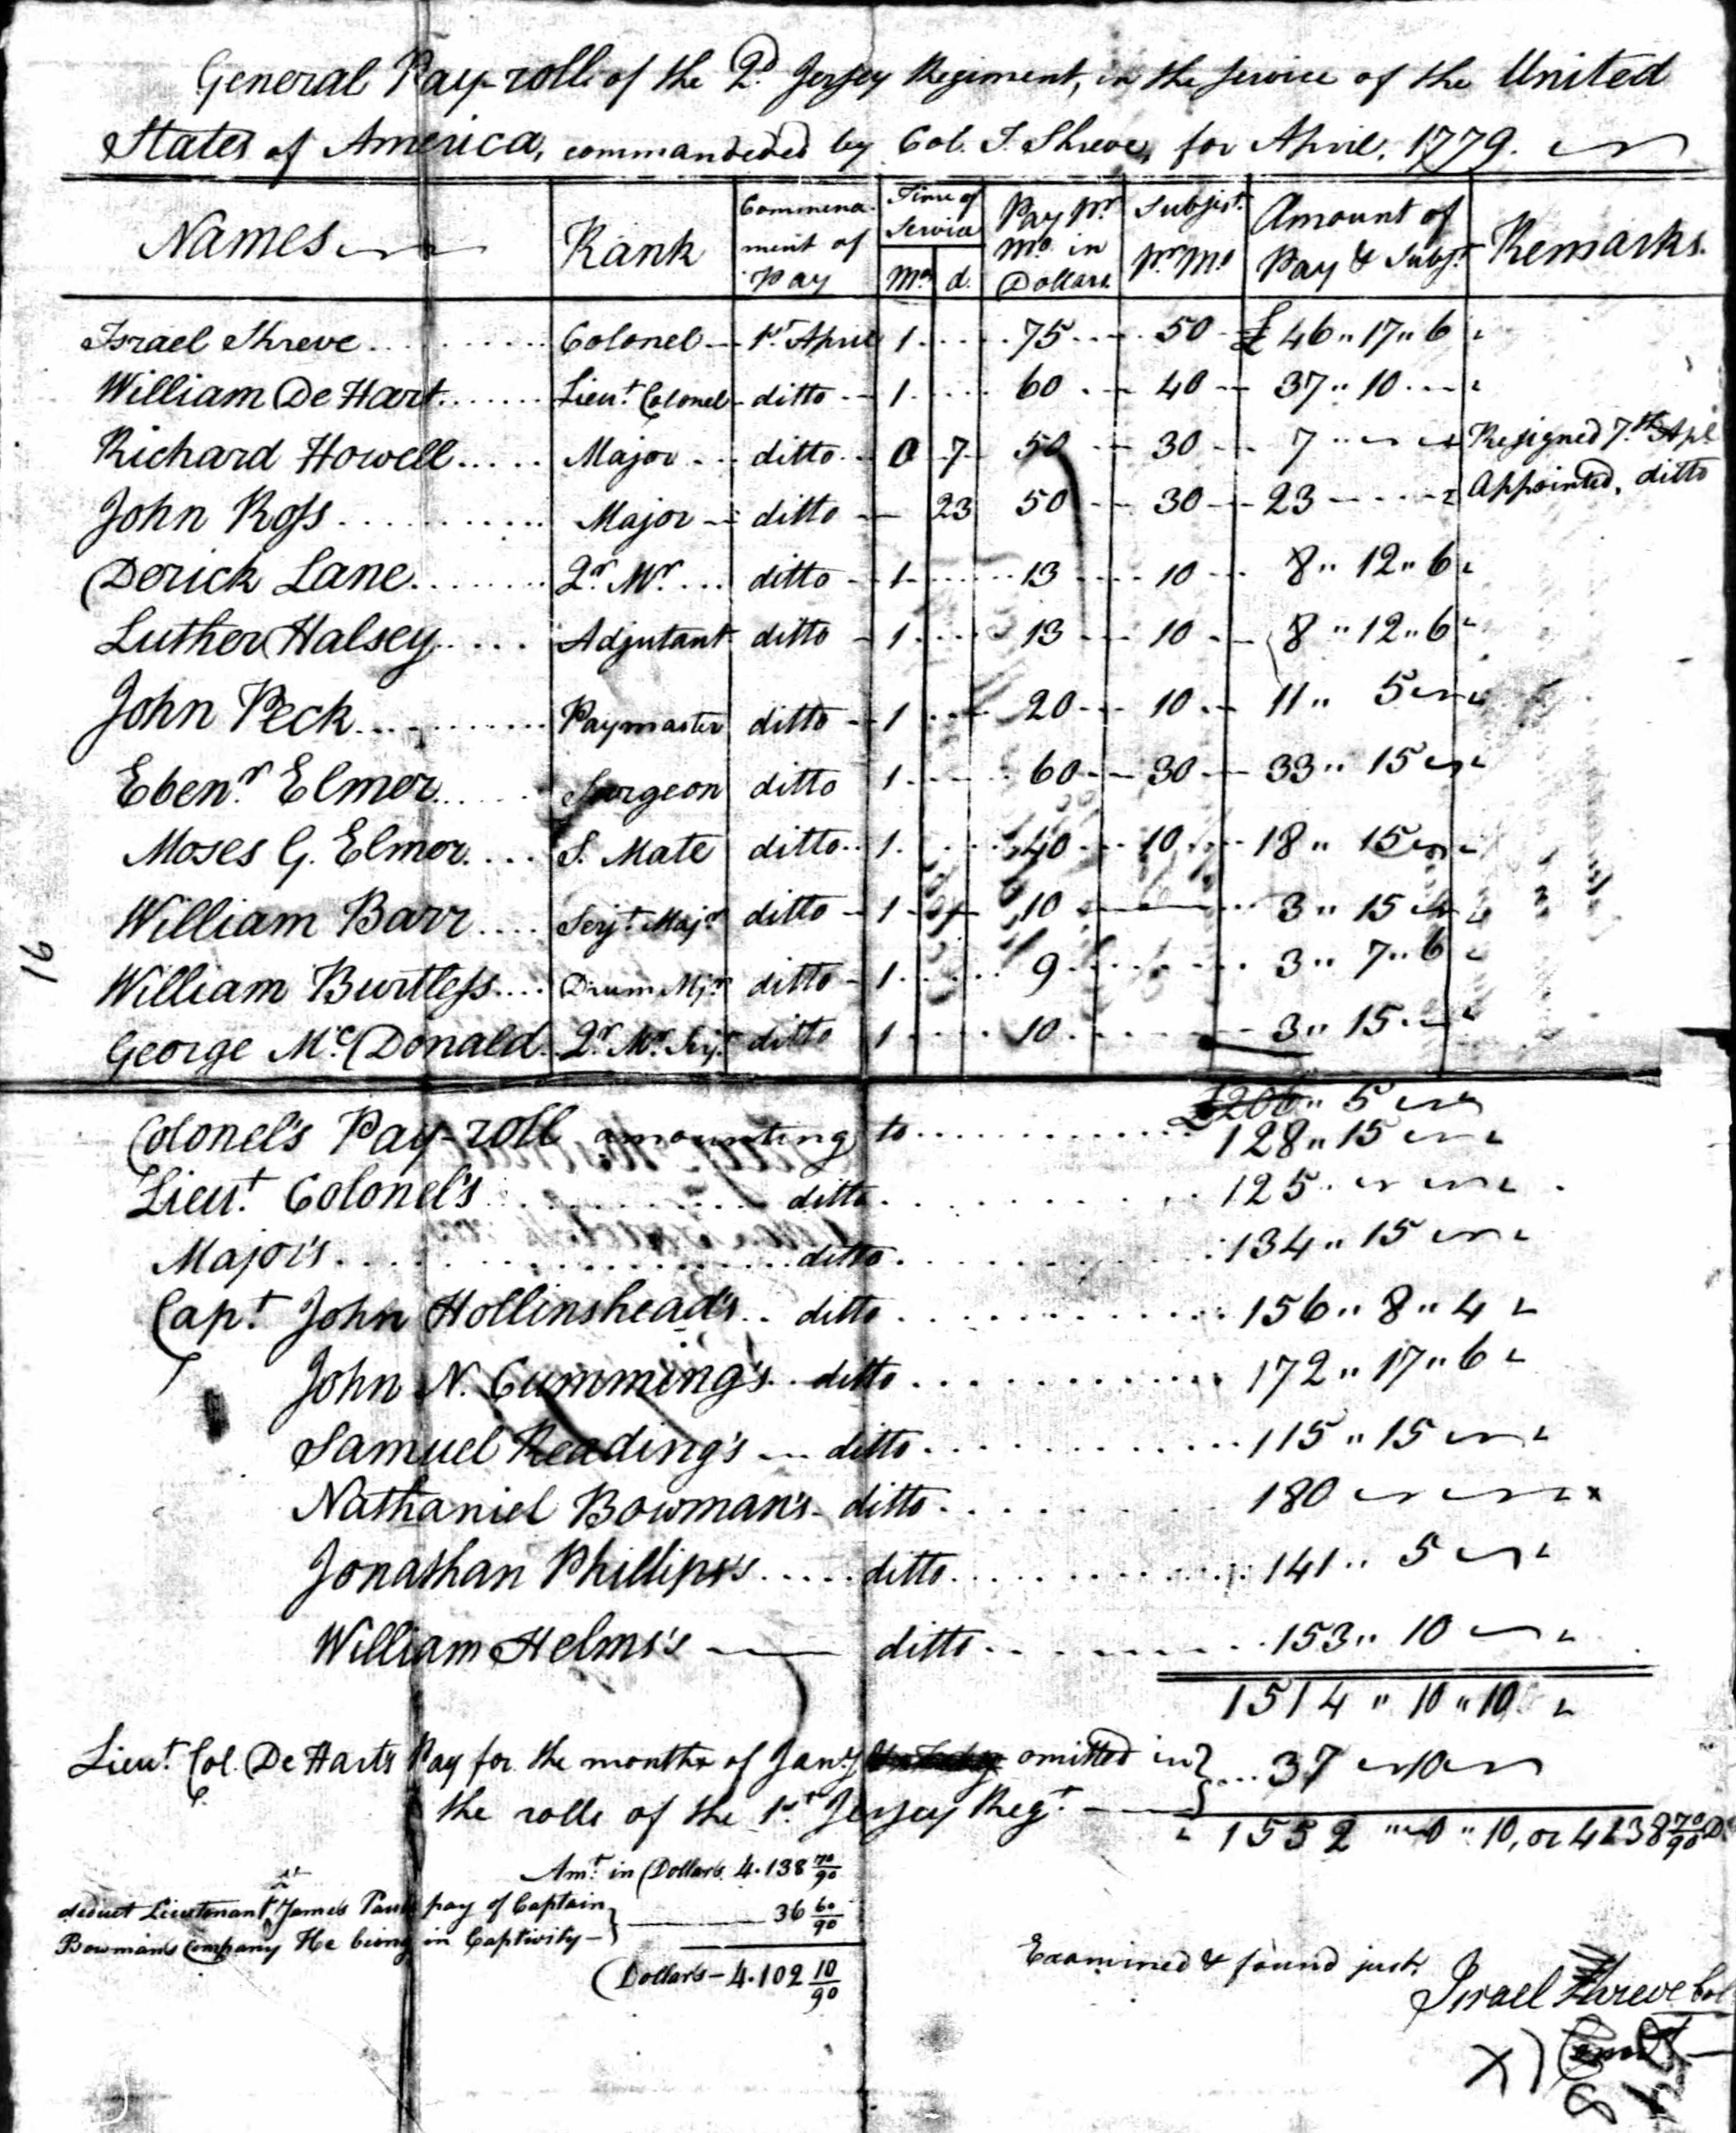 General Pay-roll of the 2d. Jersey Regiment, in the Service of the United
States of America, commandeded by Col. I. Shreve, for April, 1779.
Names Rank Commence- ment of Pay Time of Service Mo. d. Pay pr. Mo. in Dollars Subsist. pr. Mo. Amount of Pay & Subst. Remarks.
Israel Shreve Colonel 1st. April 1 75 50 £ 46 " 17 " 6
William De Hart Lieut. Colonel ditto 1 60 40 37 " 10
Richard Howell Major ditto 0 7 50 30 7 Resigned 7.th Apl
John Ross Major ditto 23 50 30 23 Appointed, ditto
Derick Lane Qr. Mr. ditto 1 13 10 8 " 12 " 6
Luther Halsey Adjutant ditto 1 13 10 8 " 12 " 6
John Peck Paymaster ditto 1 20 10 11 " 5
Ebenr. Elmer Surgeon ditto 1 60 30 33 " 15
Moses G. Elmer S. Mate ditto 1 40 10 18 " 15
William Barr Serjt. Majr ditto 1 10 3 " 15
William Burtless Drum Mjr. ditto 1 9 3 " 7 " 6
George McDonald Qr. Mr. Serjt. ditto 1 10 3 " 15
16
£206 " 5
Colonel's Pay-roll amounting to 128 " 15
Lieut. Colonel's ditto 125
Major's ditto 134 " 15
Capt. John Hollinshead's ditto 156 " 8 " 4
John N. Cumming's ditto 172 " 17 " 6
Samuel Reading's ditto 115 " 15
Nathaniel Bowman's ditto 180
Jonathan Phillips's ditto 141 " 5
William Helms's ditto 153 " 10
1514 " 10 " 10
Lieut. Col. De Harts Pay for the months of Jany. omitted in 37 10
the rolls of the 1st. Jersey Regt.
1552 " 0 " 10, or 4138 70/90 D.
Amt. in Dollars 4.138 70/90
deduct Lieutenant James Pauls pay of Captain
Bowmans Company He being in Captivity 36 60/90
Dollars 4.102 10/90
Examined & found just.
Israel Shreve Col